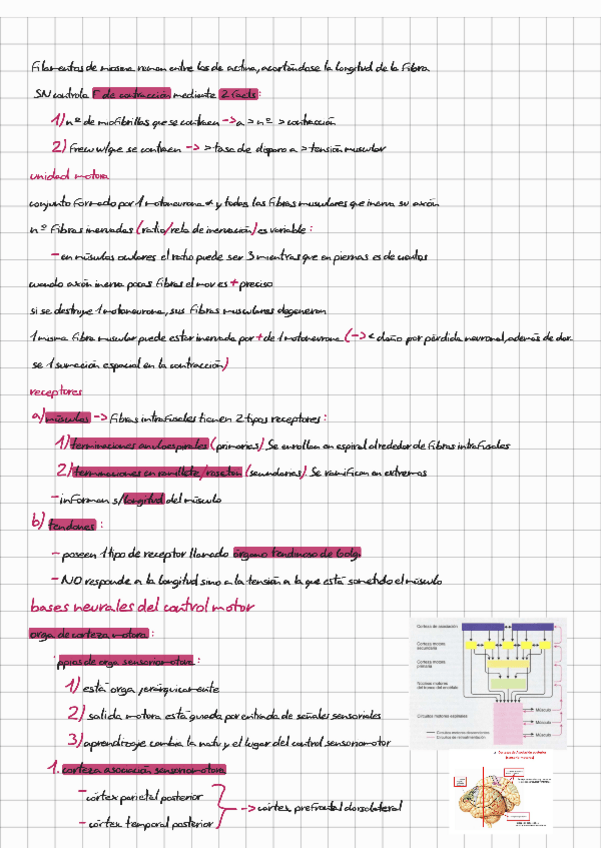 Filamentos de miosina reman entre los de actina, acortándose la longitud de la fibra
SN controla F de contracción mediante 2 facts:
1) nº de miofibrillas que se contraen -> a > nº > contracción
2) Frecu w/que se contraen -> > tasa de disparo a > tensión muscular
unidad motora
conjunto formado por 1 motoneurona α y todas las fibras musculares que inerva su axón
nº fibras inervadas (ratio/reta de inervación) es variable:
- en músculos oculares el ratio puede ser 3 mientras que en piernas es de cientos
cuando axón inerva pocas fibras el mov es + preciso
si se destruye 1 motoneurona, sus fibras musculares degeneran
1 misma fibra muscular puede estar inervada por + de 1 motoneurona (-> < daño por pérdida neuronal, además de dar.
se 1 sumación espacial en la contracción)
receptores
a) músculos -> fibras intrafusales tienen 2 tipos receptores:
1) terminaciones anuloespirales (primarias). Se enrollan en espiral alrededor de fibras intrafusales
2) terminaciones en ramillete/roseta (secundarias). Se ramifican en extremos
- informan s/longitud del músculo
b) tendones:
- poseen 1 tipo de receptor llamado órgano tendinoso de Golgi
- NO responde a la longitud sino a la tensión a la que está sometido el músculo
bases neurales del control motor
orga de corteza motora:
ppios de orga sensoriomotora:
1) está orga jerárquicamente
2) salida motora está guiada por entrada de señales sensoriales
3) aprendizaje cambia la natu y el lugar del control sensoriomotor
1. corteza asociación sensoriomotora
- córtex parietal posterior
-> córtex prefrontal dorsolateral
- córtex temporal posterior
Corteza de asociación
Corteza motora secundaria
Corteza motora primaria
Núcleos motores del tronco del encéfalo
Circuitos motores espinales
Músculo
Músculo
Músculo
Circuitos motores descendentes
Circuitos de retroalimentación